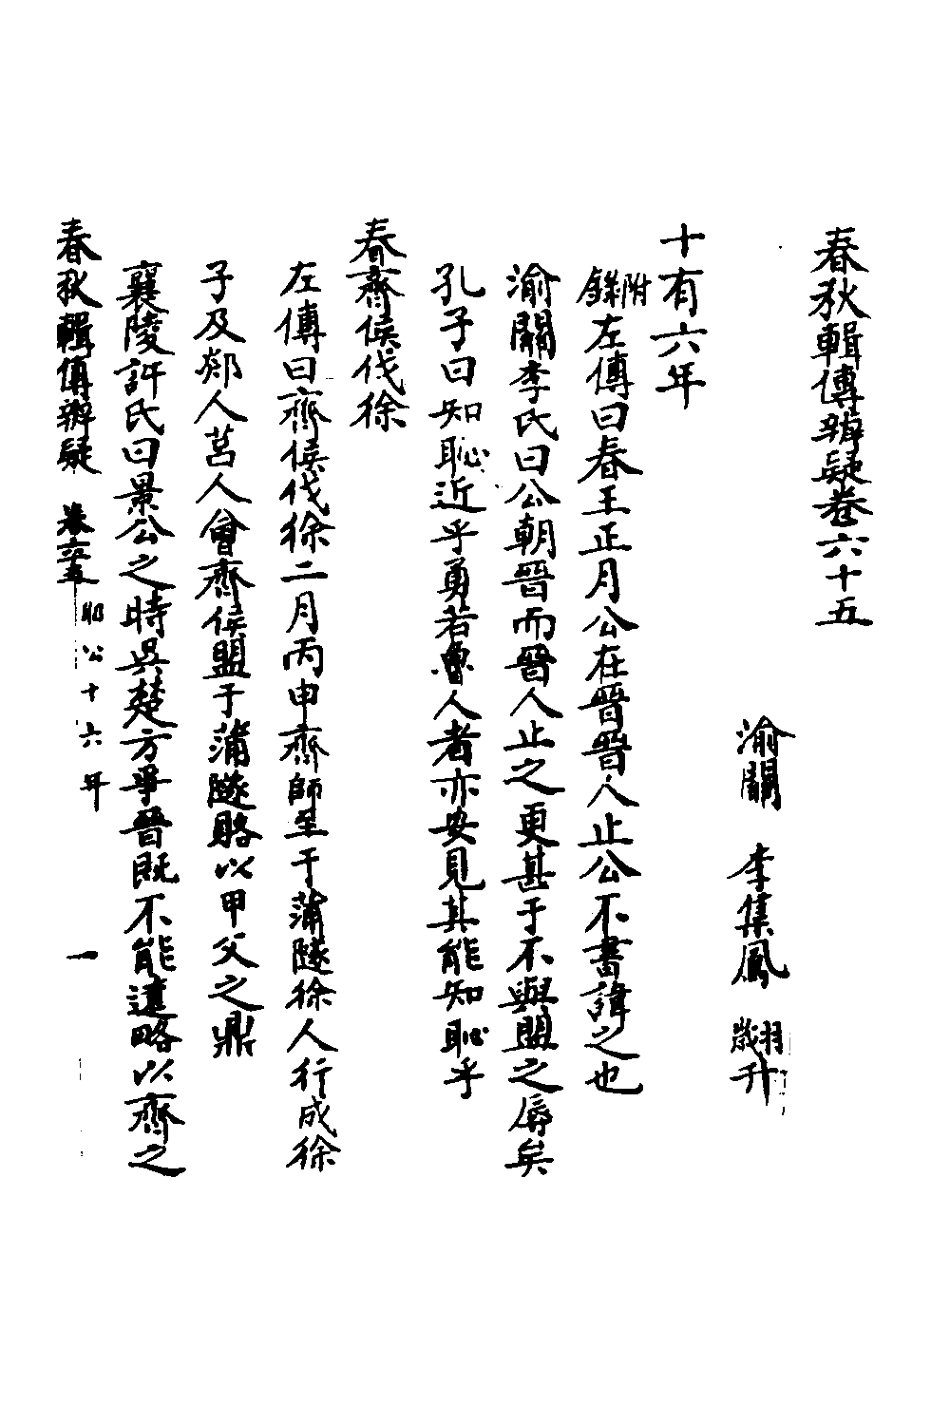 春秋輯傳辨疑卷六十五
渝關　李集鳳　翽升
十有六年
附錄左傳曰春王正月公在晉晉人止公不書諱之也
渝關李氏曰公朝晉而晉人止之更甚于不與盟之辱矣
孔子曰知恥近乎勇若魯人者亦安見其能知恥乎
春齊侯伐徐
左傳曰齊侯伐徐二月丙申齊師至于蒲隧徐人行成徐
子及郯人莒人會齊侯盟于蒲隧賂以甲父之鼎
襄陵許氏曰景公之時吳楚方爭晉既不能遠略以齊之
春秋輯傳辨疑　卷六十五　昭公十六年　一